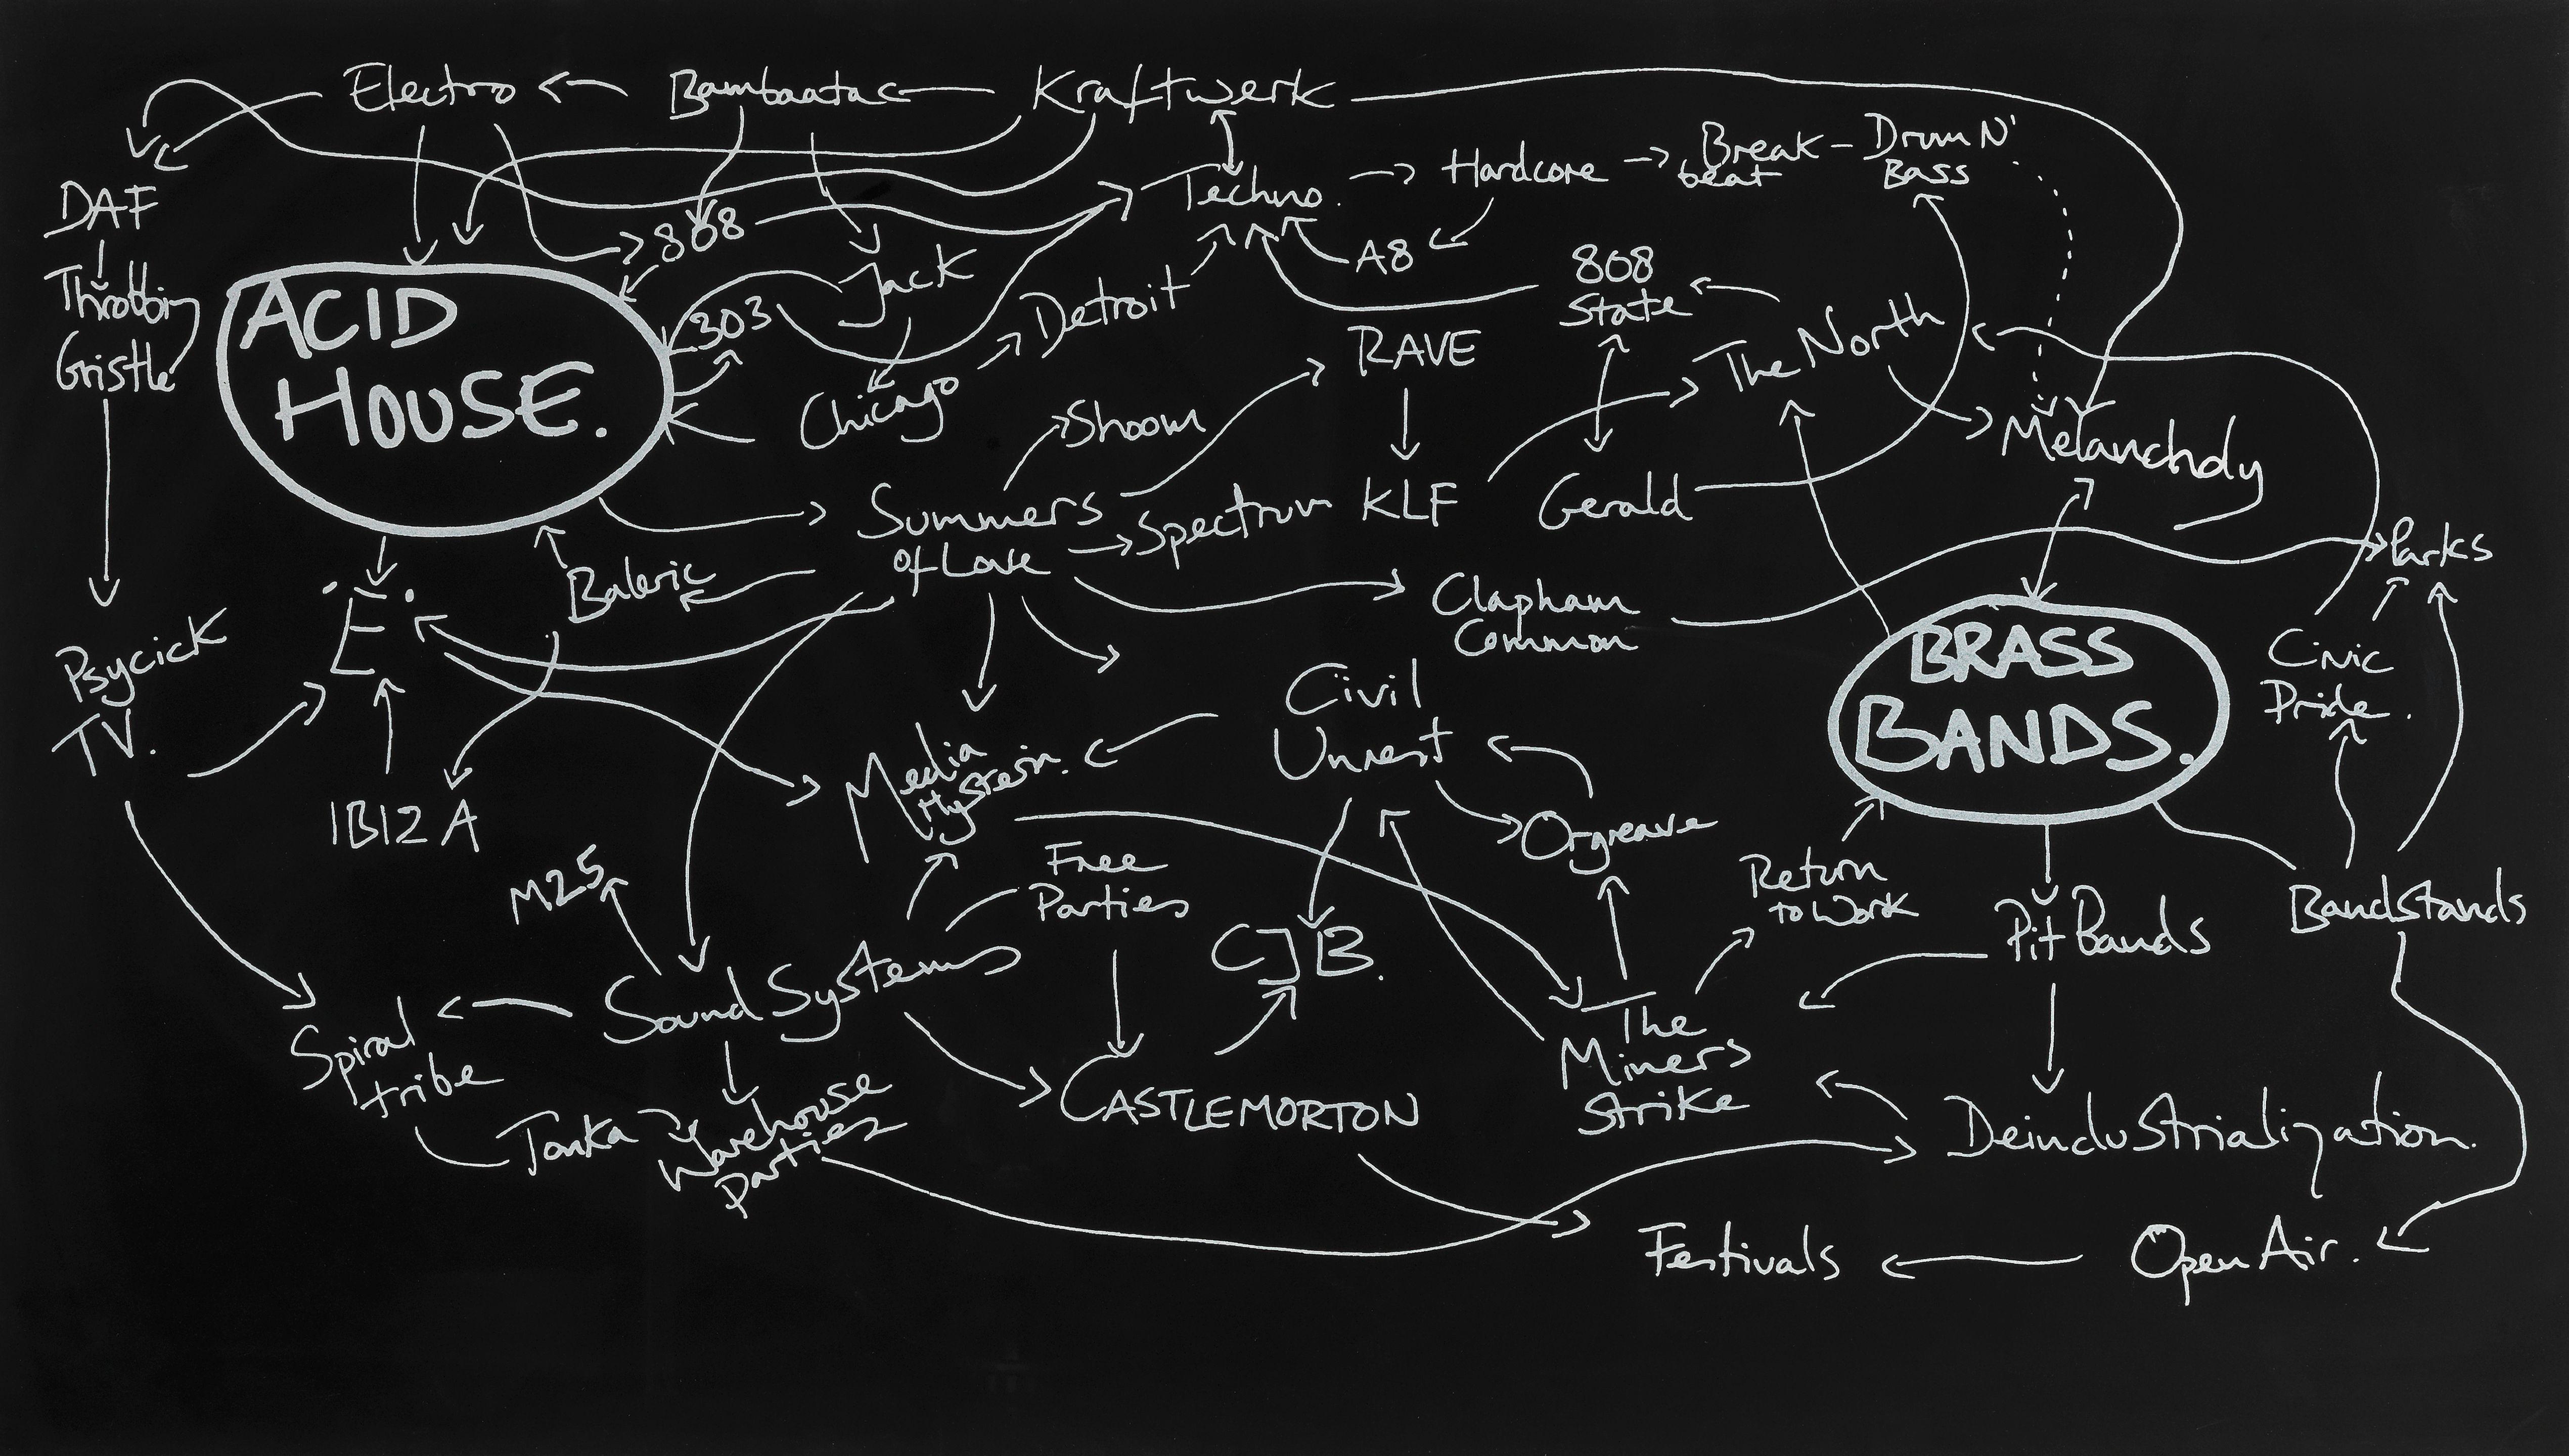 Electro
Bambaataa
Kraftwerk
DAF
Throbbing
Gristle
808
Techno.
Hardcore
Break
beat
Drum N'
Bass
Jack
303
Detroit
A8
808
State
The North
ACID
HOUSE.
Chicago
Shoom
RAVE
Melancholy
Summers
of Love
Spectrum
KLF
Gerald
Parks
Baleric
Clapham
Common
BRASS
BANDS.
Civic
Pride.
Psycick
TV.
E
Civil
Unrest
Media
Hysteria.
IBIZA
Orgreave
M25
Free
Parties
CJB.
Return
to Work
Pit Bands
Bandstands
Sound Systems
Spiral
tribe
The
Miners
Strike
CASTLEMORTON
Tonka
Warehouse
parties
Deindustrialization.
Festivals
Open Air.